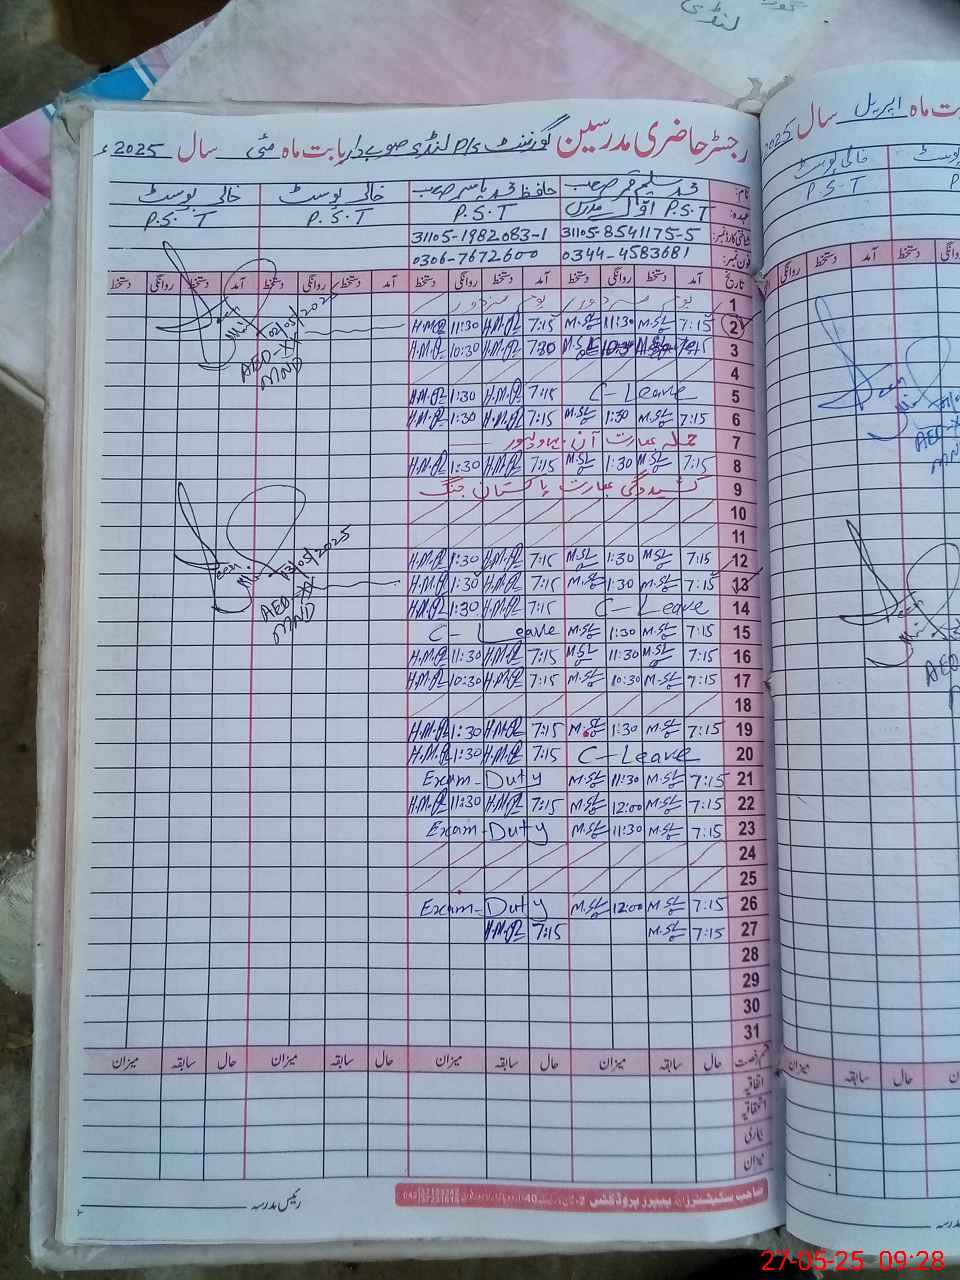 رجسٹر حاضری مدرسین گورنمنٹ P/S لنڈی صوبیدار بابت ماہ مئی سال 2025ء
نام: محمد سلیم قمر صاحب حافظ محمد یاسر صاحب خالی پوسٹ خالی پوسٹ
عہدہ: P.S.T اوّل مدرس P.S.T P.S.T P.S.T
شناختی کارڈ نمبر: 31105-8541175-5 31105-1982083-1
فون نمبر: 0344-4583681 0306-7672600
تاریخ آمد دستخط روانگی دستخط آمد دستخط روانگی دستخط آمد دستخط روانگی دستخط آمد دستخط روانگی دستخط
1 یوم مزدور یوم مزدور
2 7:15 M.SL 11:30 M.SL 7:15 H.M.R 11:30 H.M.R
3 7:15 M.SL 10:30 M.SL 7:30 H.M.R 10:30 H.M.R
4
5 C-Leave 7:15 H.M.R 1:30 H.M.R
6 7:15 M.SL 1:30 M.SL 7:15 H.M.R 1:30 H.M.R
7 حملہ بھارت آن بہاولپور
8 7:15 M.SL 1:30 M.SL 7:15 H.M.R 1:30 H.M.R
9 کشیدگی بھارت پاکستان جنگ
10
11
12 7:15 M.SL 1:30 M.SL 7:15 H.M.R 1:30 H.M.R
13 7:15 M.SL 1:30 M.SL 7:15 H.M.R 1:30 H.M.R
14 C-Leave 7:15 H.M.R 1:30 H.M.R
15 7:15 M.SL 1:30 M.SL C-Leave
16 7:15 M.SL 11:30 M.SL 7:15 H.M.R 11:30 H.M.R
17 7:15 M.SL 10:30 M.SL 7:15 H.M.R 10:30 H.M.R
18
19 7:15 M.SL 1:30 M.SL 7:15 H.M.R 1:30 H.M.R
20 C-Leave 7:15 H.M.R 1:30 H.M.R
21 7:15 M.SL 11:30 M.SL Exam-Duty
22 7:15 M.SL 12:00 M.SL 7:15 H.M.R 11:30 H.M.R
23 7:15 M.SL 11:30 M.SL Exam-Duty
24
25
26 7:15 M.SL 12:00 M.SL Exam-Duty
27 7:15 M.SL 7:15 H.M.R
28
29
30
31
02/05/2025
AEO-XX
MND
13/05/2025
AEO-XX
MND
قسم رخصت حال سابقہ میزان حال سابقہ میزان حال سابقہ میزان حال سابقہ میزان
اتفاقیہ
استحقاقیہ
بیماری
میزان
رئیس مدرسہ
صاحب سٹیشنرز اینڈ پیپر پروڈکٹس
بابت ماہ اپریل سال 2025
خالی پوسٹ
P.S.T
27-05-25 09:28